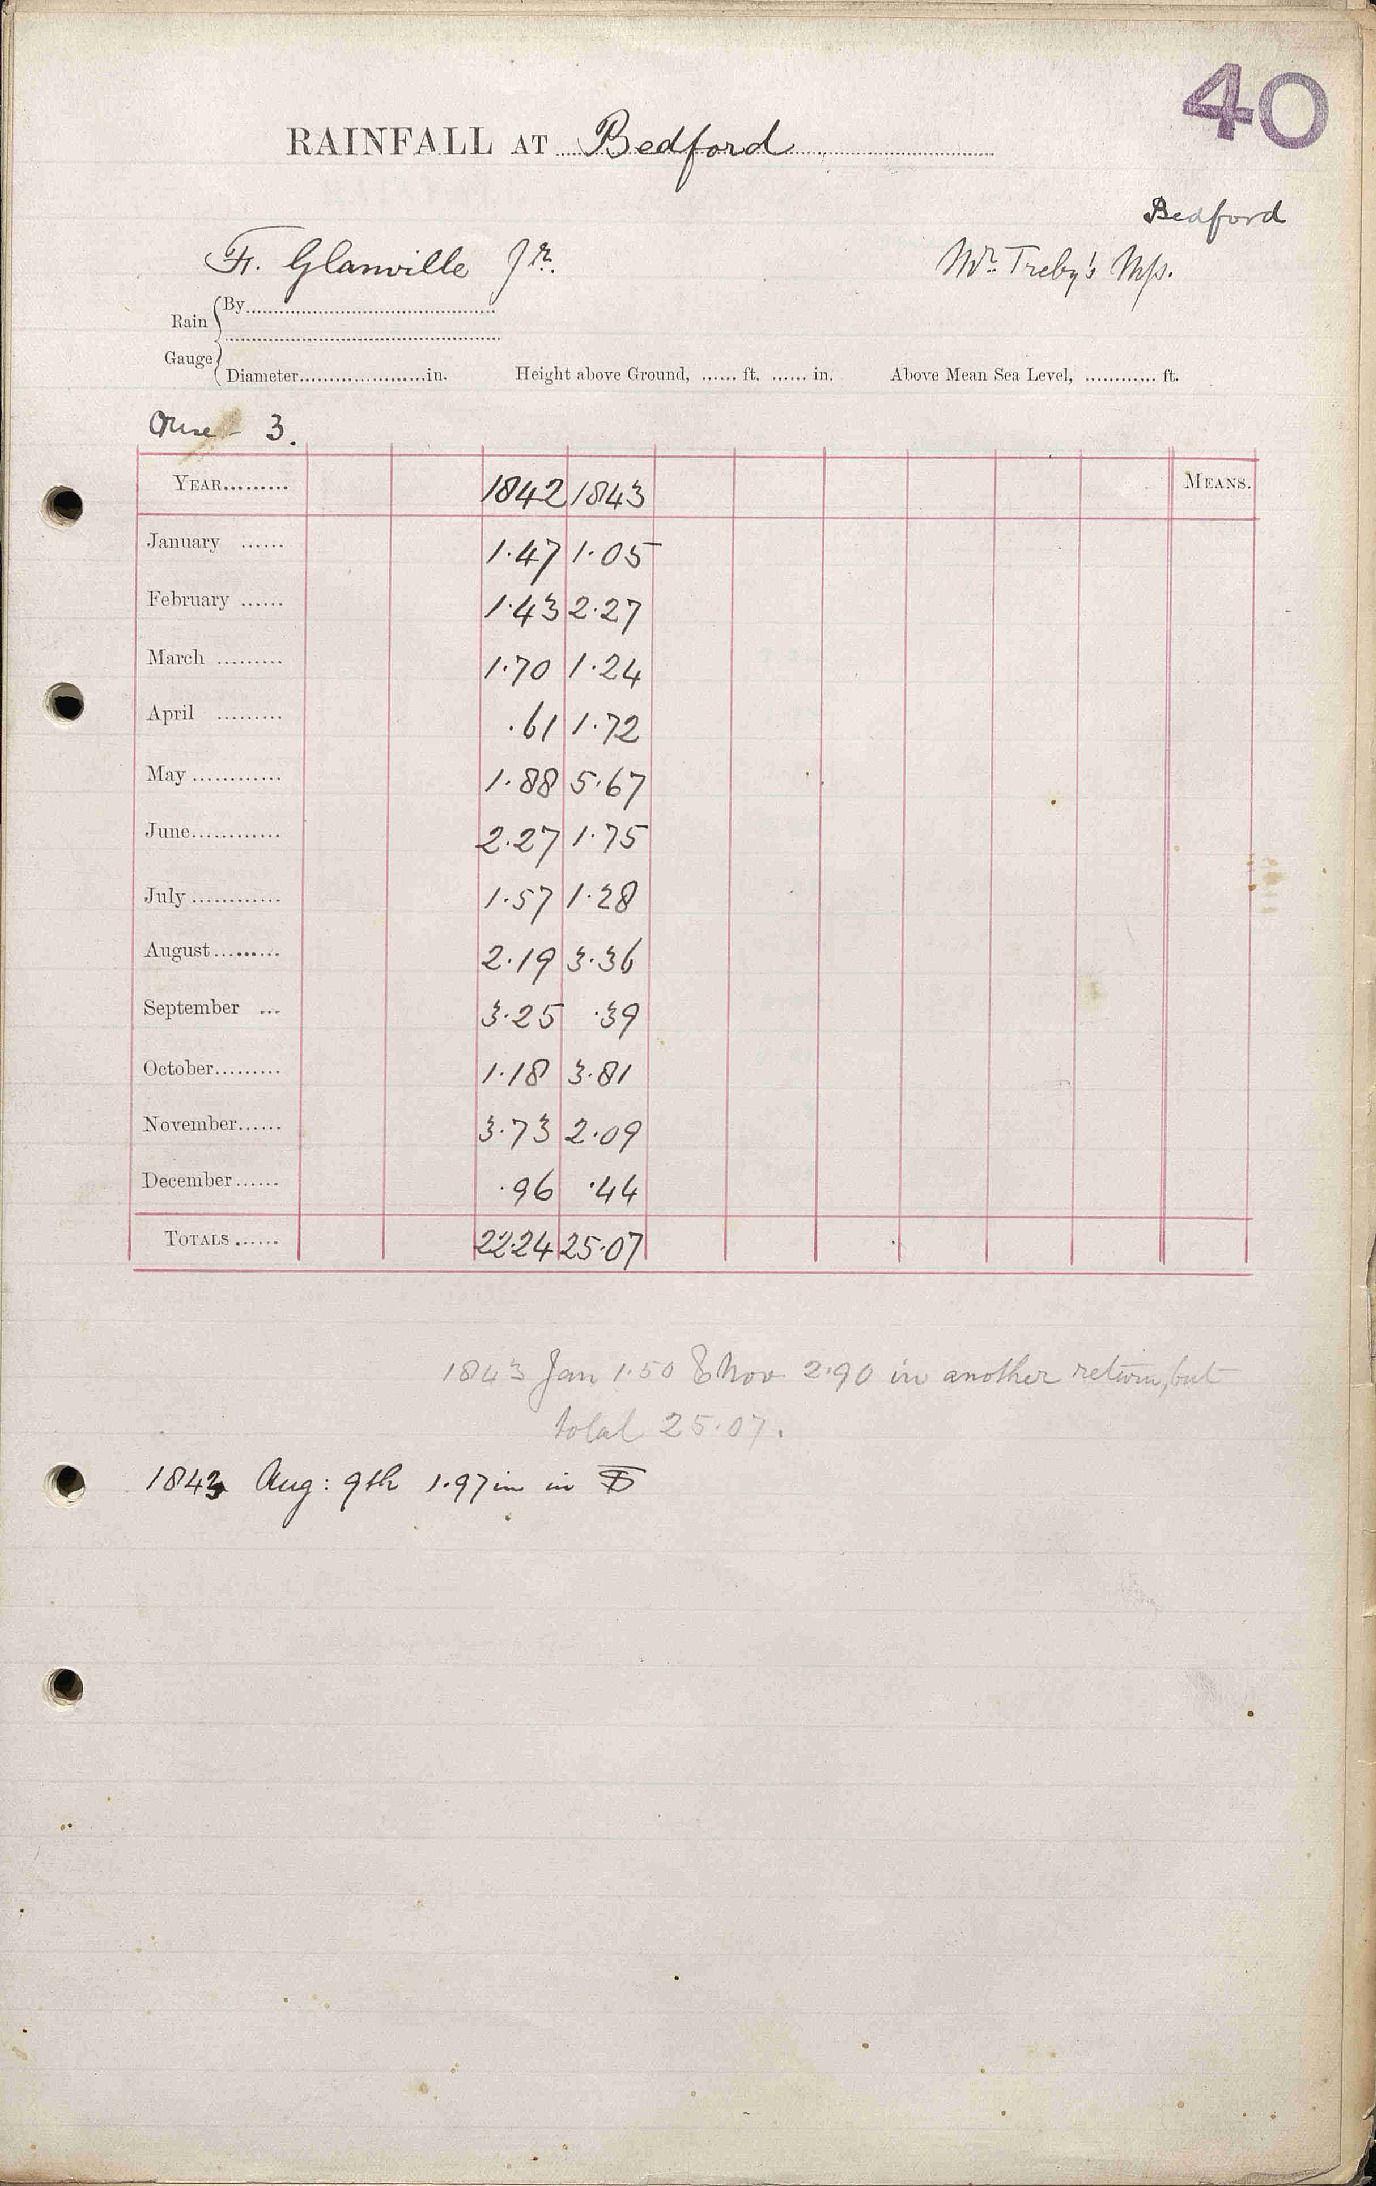 40
RAINFALL AT Bedford
Bedford
Fr. Glanville Jr.
Mr. Treby's Mss.
Rain Gauge
By
Diameter in. Height above Ground, ft. in. Above Mean Sea Level, ft.
Ouse - 3.
YEAR 1842 1843 MEANS.
January 1.47 1.05
February 1.43 2.27
March 1.70 1.24
April .61 1.72
May 1.88 5.67
June 2.27 1.75
July 1.57 1.28
August 2.19 3.36
September 3.25 .39
October 1.18 3.81
November 3.73 2.09
December .96 .44
TOTALS 22.24 25.07
1843 Jan 1.50 & Nov 2.90 in another return, but
total 25.07.
1843 Aug: 9th 1.97 in in